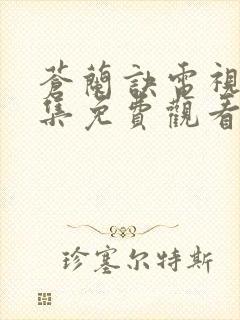 蒼蘭訣電視
集免費觀看
珍塞尔特斯